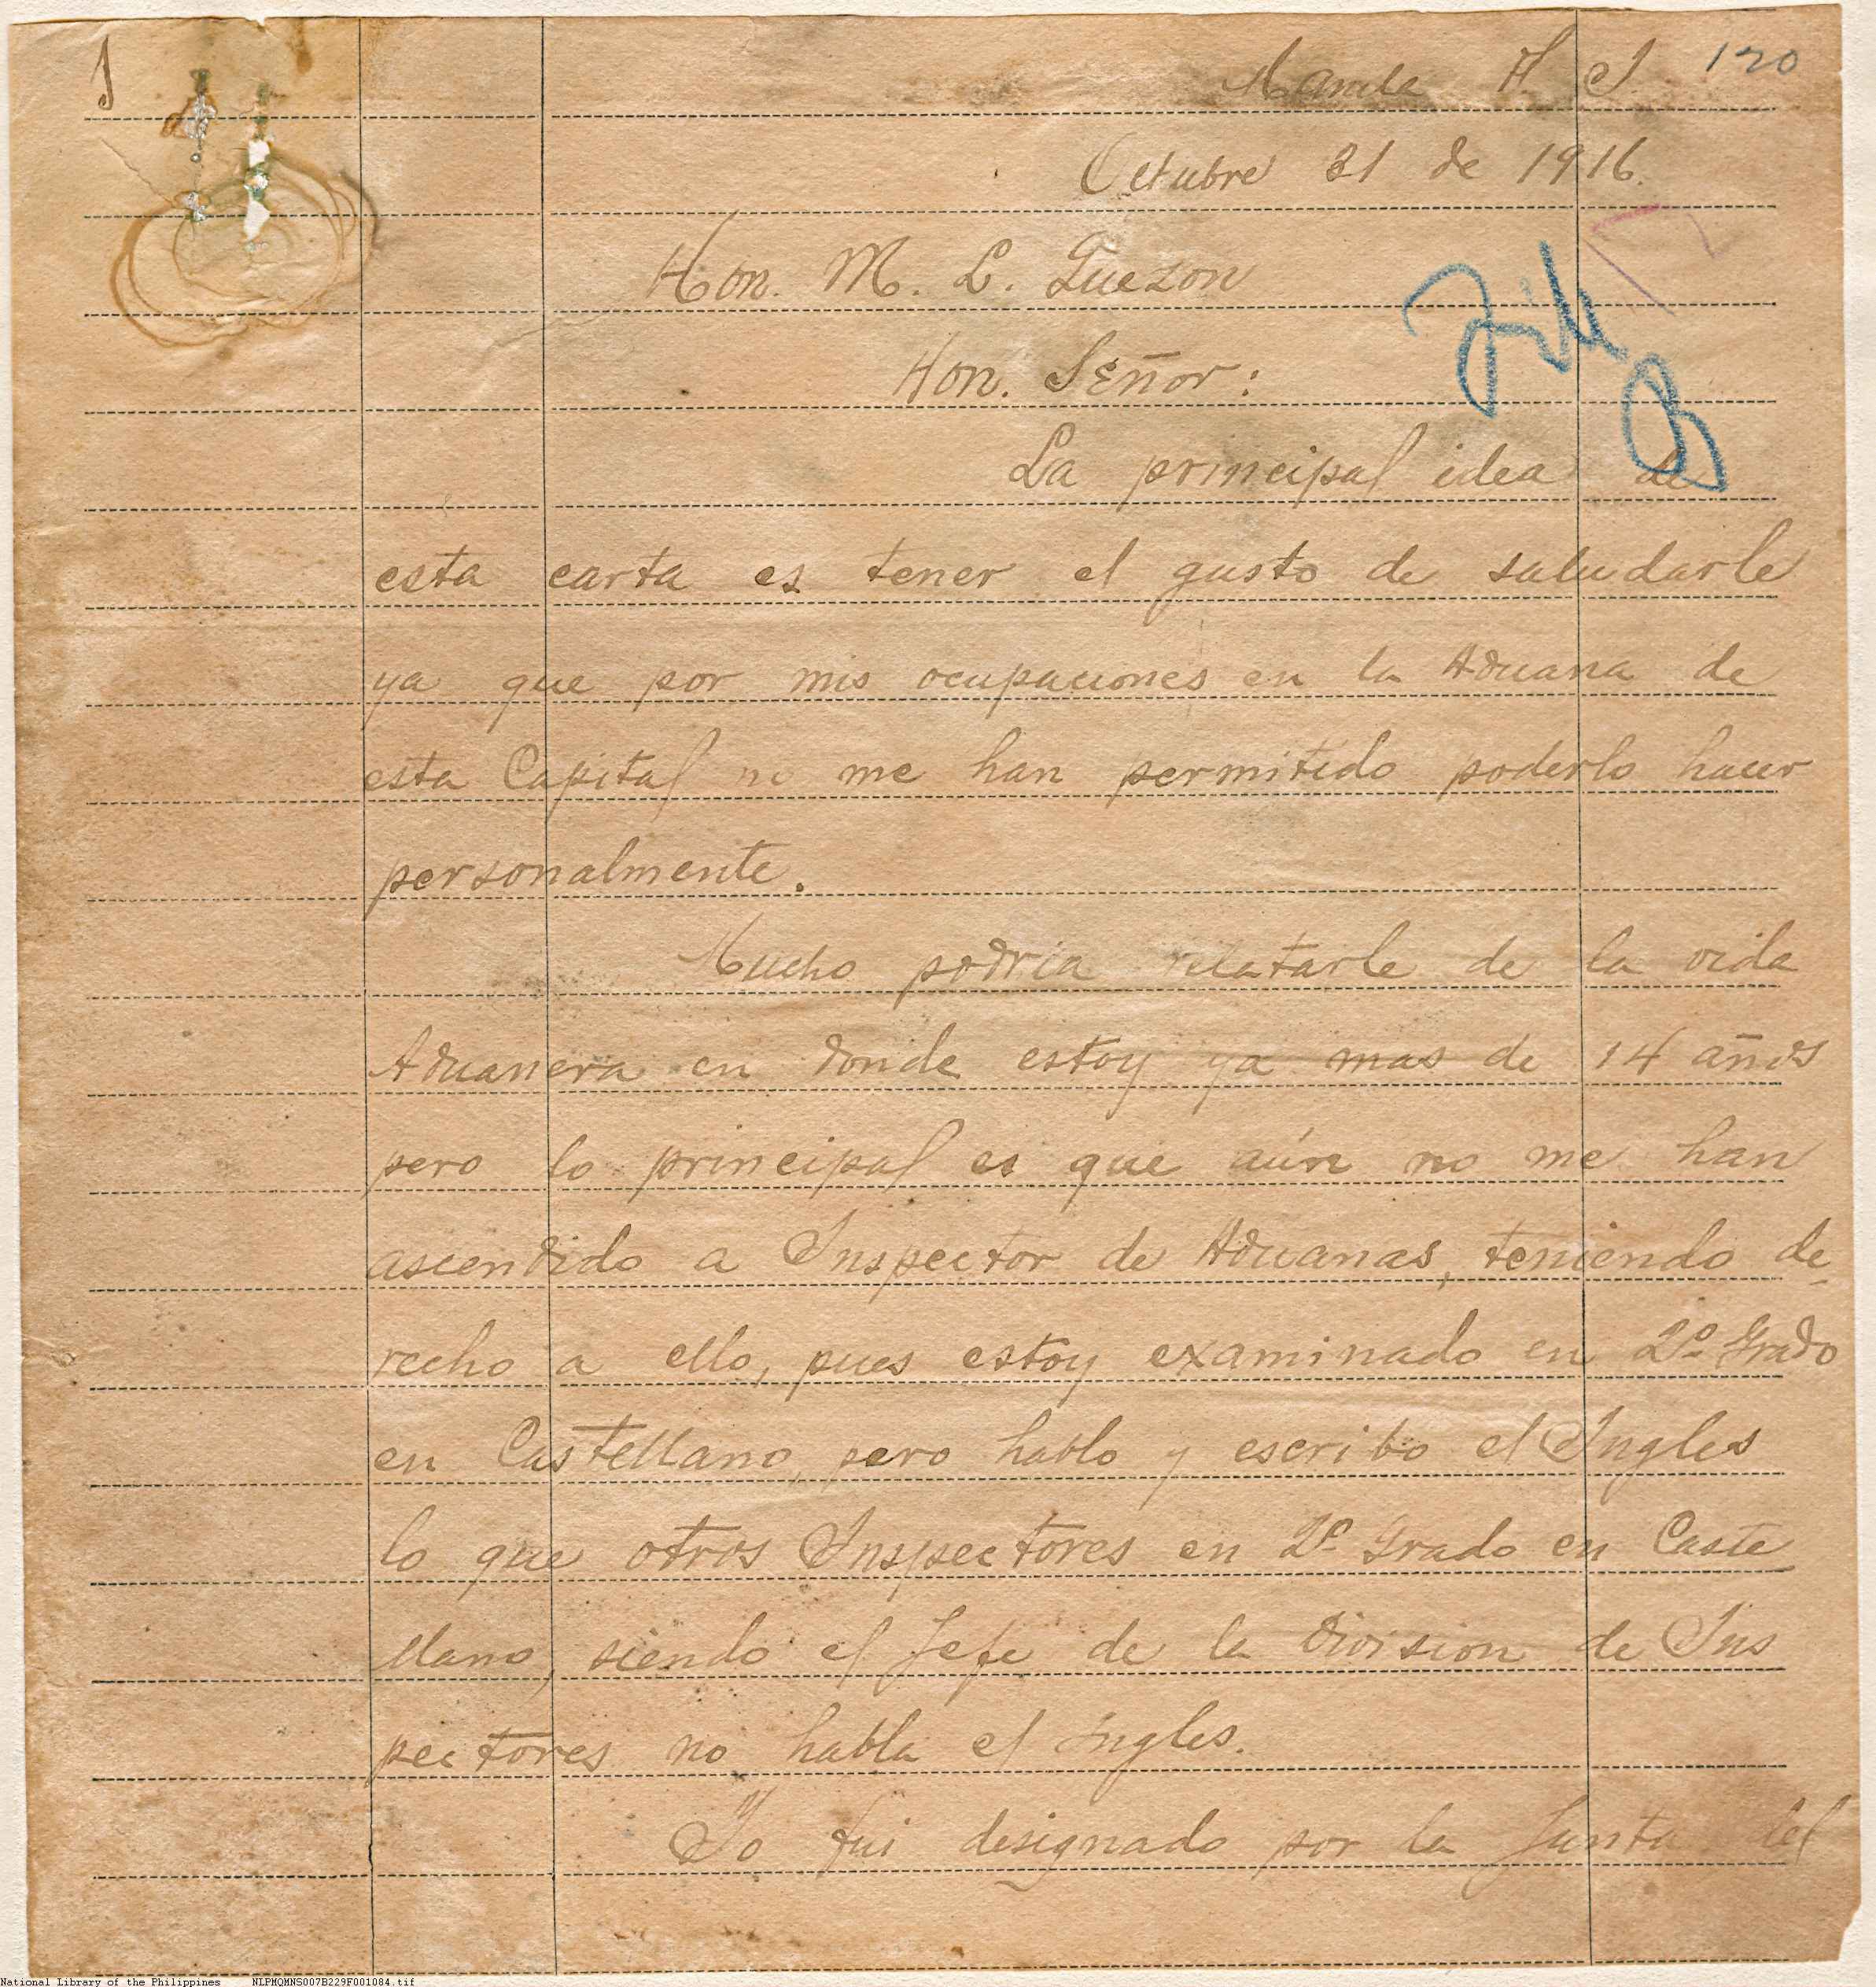 1
120
Manila P. I.
Octubre 31 de 1916.
Hon. M. L. Quezon
File
Hon. Señor:
La principal idea de
esta carta es tener el gusto de saludarle
ya que por mis ocupaciones en la Aduana de
esta Capital no me han permitido poderlo hacer
personalmente.
Mucho podria relatarle de la vida
Aduanera en donde estoy ya mas de 14 años
pero lo principal es que aún no me han
ascendido a Inspector de Aduanas, teniendo de-
recho a ello, pues estoy examinado en 2º Grado
en Castellano, pero hablo y escribo el Ingles
lo que otros Inspectores en 2º Grado en Caste
llano, siendo el Jefe de la Division de Ins
pectores no habla el Ingles.
Yo fui designado por la Junta del
National Library of the Philippines NLPMQMNS007B229F001084.tif